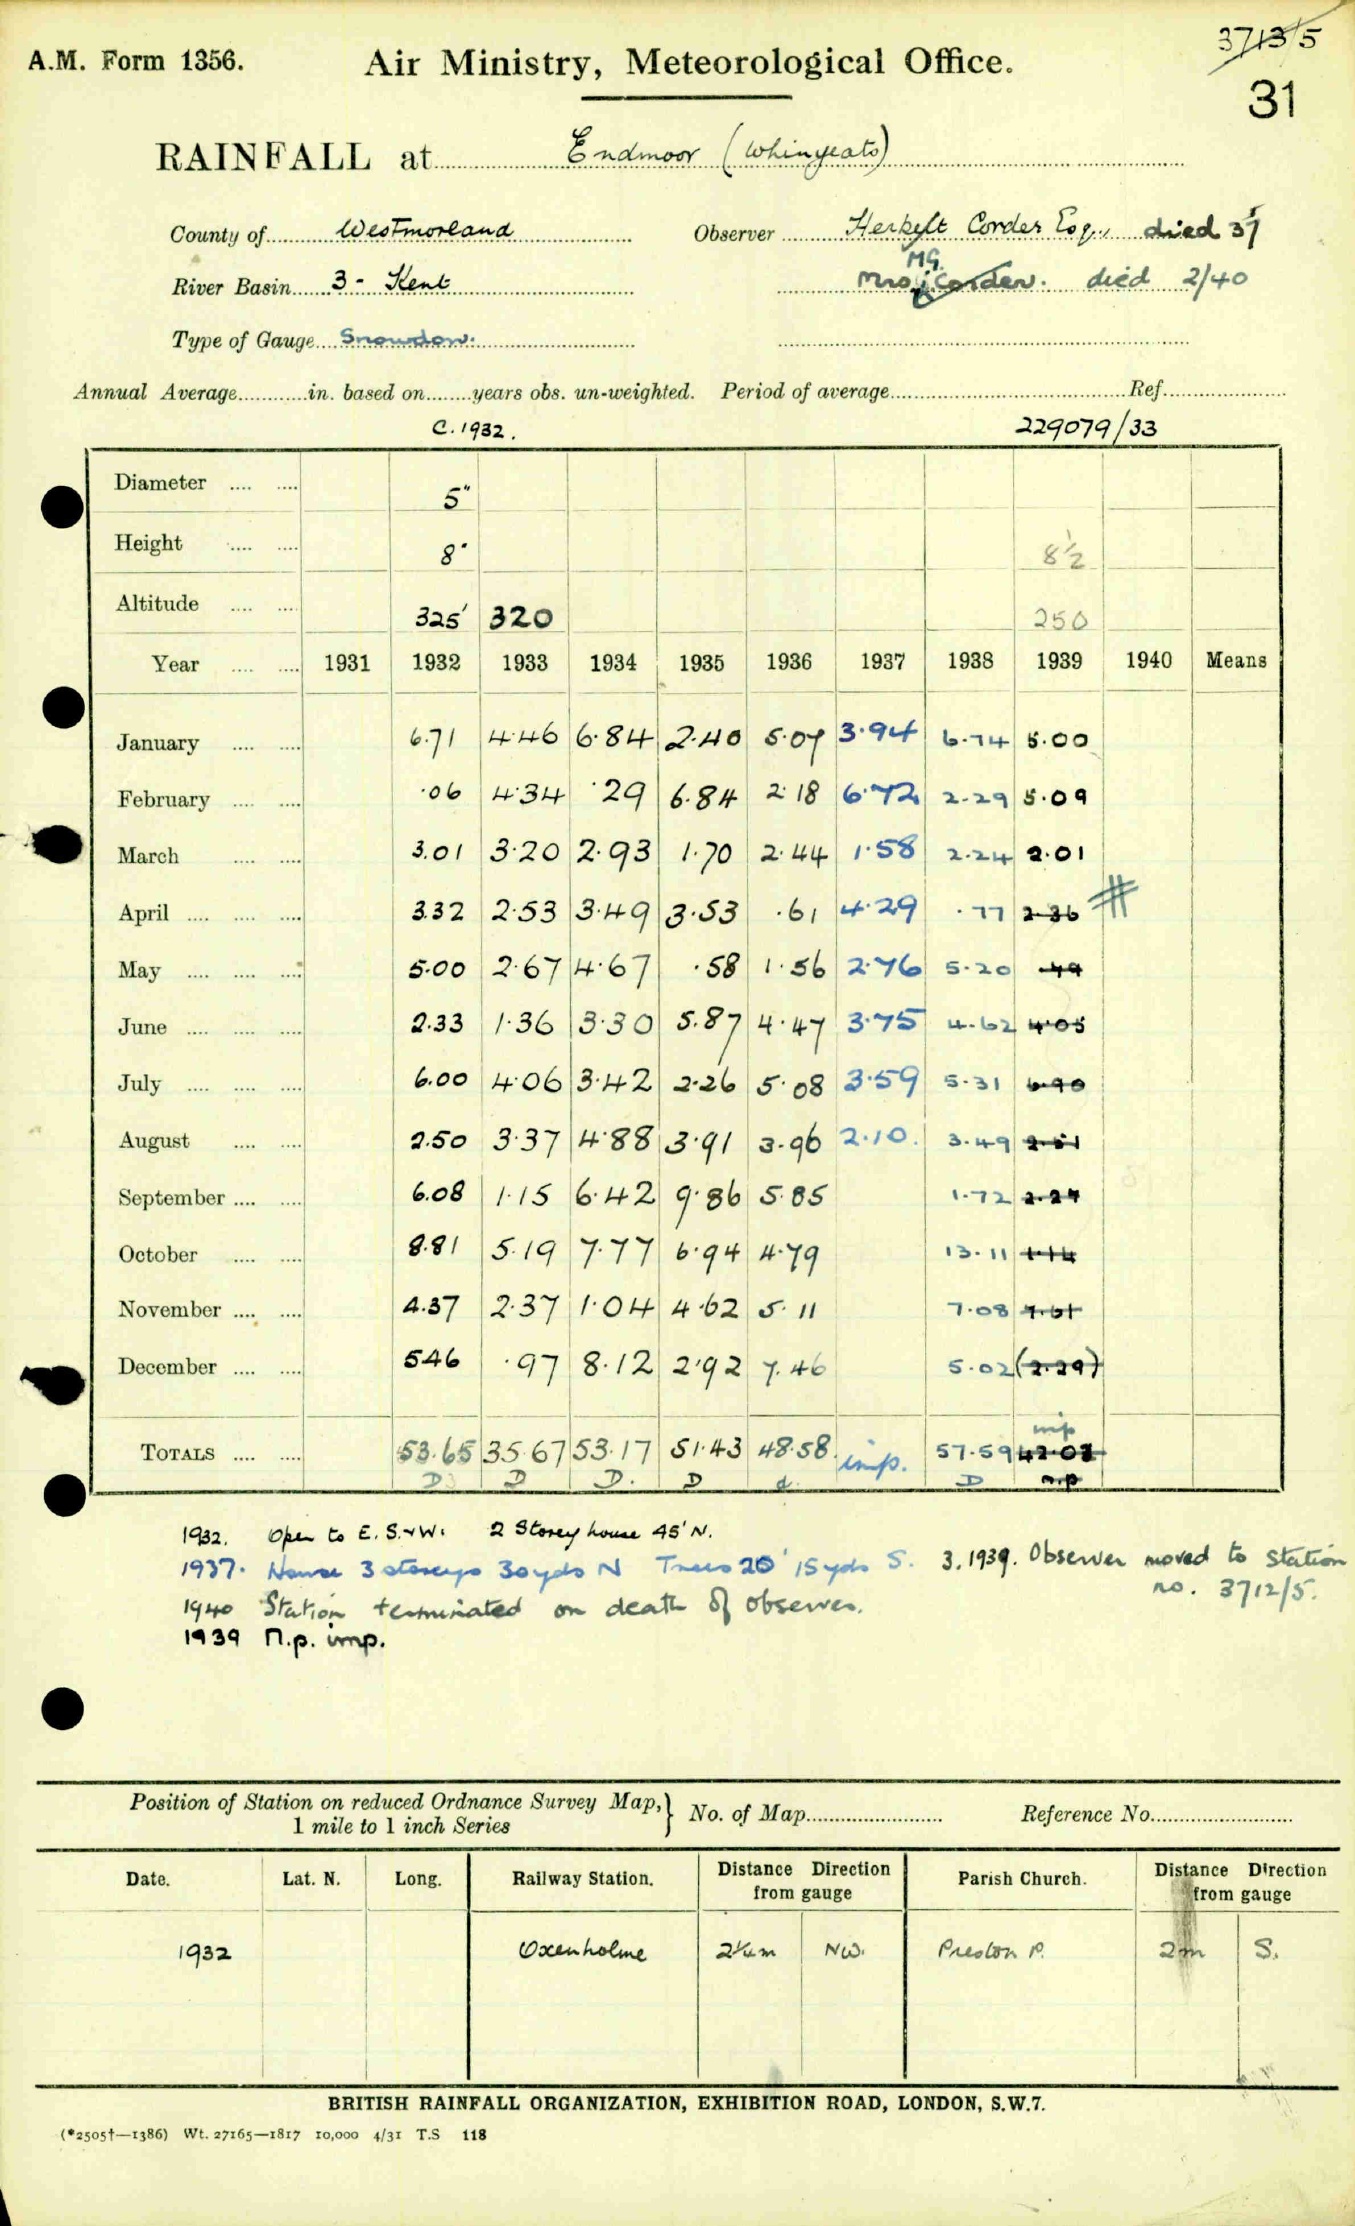 3713/5
A.M. Form 1356. Air Ministry, Meteorological Office.
31
RAINFALL at Endmoor (Whinyeats)
County of Westmorland Observer Corder Esq., died 37
River Basin 3 - Kent Mrs MG Corder. died 2/40
Type of Gauge Snowdon.
Annual Average in. based on years obs. un-weighted. Period of average Ref.
C. 1932. 229079/33
Diameter .... .... 5"
Height .... .... 8" 8½
Altitude .... .... 325' 320 250
Year .... .... 1931 1932 1933 1934 1935 1936 1937 1938 1939 1940 Means
January .... .... 6.71 4.46 6.84 2.40 5.07 3.94 6.74 5.00
February .... .... .06 4.34 .29 6.84 2.18 6.72 2.29 5.09
March .... .... 3.01 3.20 2.93 1.70 2.44 1.58 2.24 2.01
April .... .... .... 3.32 2.53 3.49 3.53 .61 4.29 .77 2.36 #
May .... .... .... 5.00 2.67 4.67 .58 1.56 2.76 5.20 .49
June .... .... .... 2.33 1.36 3.30 5.87 4.47 3.75 4.62 4.05
July .... .... .... 6.00 4.06 3.42 2.26 5.08 3.59 5.31 6.90
August .... .... 2.50 3.37 4.88 3.91 3.96 2.10. 3.49
September .... .... 6.08 1.15 6.42 9.86 5.85 1.72 2.27
October .... .... 8.81 5.19 7.77 6.94 4.79 13.11 1.14
November .... .... 4.37 2.37 1.04 4.62 5.11 7.08
December .... .... 5.46 .97 8.12 2.92 7.46 5.02 (2.29)
imp
TOTALS .... .... 53.65 35.67 53.17 51.43 48.58 imp. 57.59
D D D. D d D n.p
1932. Open to E. S. & W. 2 Storey house 45' N.
1937. House 3 storeys 30yds N Trees 20' 15yds S. 3.1939. Observer moved to station
no. 3712/5.
1940 Station terminated on death of observer.
1939 n.p. imp.
Position of Station on reduced Ordnance Survey Map,} No. of Map Reference No.
1 mile to 1 inch Series
Date. Lat. N. Long. Railway Station. Distance Direction Parish Church. Distance Direction
from gauge from gauge
1932 Oxenholme 2¼m NW. Preston P. 2m S.
BRITISH RAINFALL ORGANIZATION, EXHIBITION ROAD, LONDON, S.W.7.
(*2505†—1386) Wt. 27165—1817 10,000 4/31 T.S 118